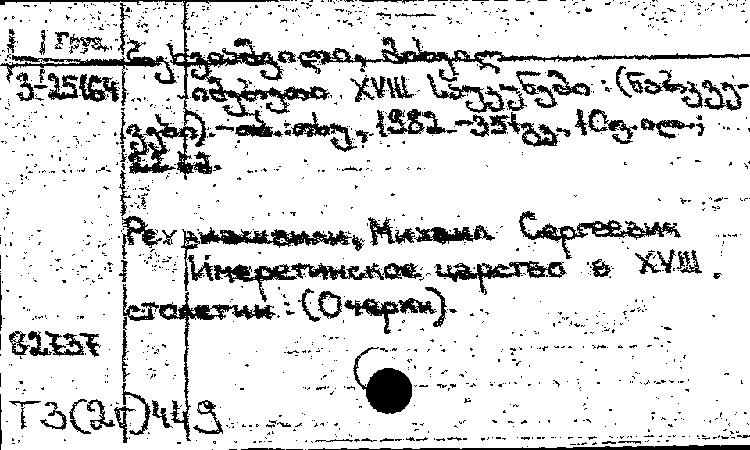 Груз. რეხვიაშვილი, მიხეილ
3-25164 იმერეთი XVIII საუკუნეში : (ნარკვე-
ვები). - თბ. : თსუ, 1982. - 351 გვ., 10 ფ. ილ.;
22 სმ.
Рехвиашвили, Михаил Сергеевич
Имеретинское царство в XVIII
столетии : (Очерки).
82737
Т3(2Г)449